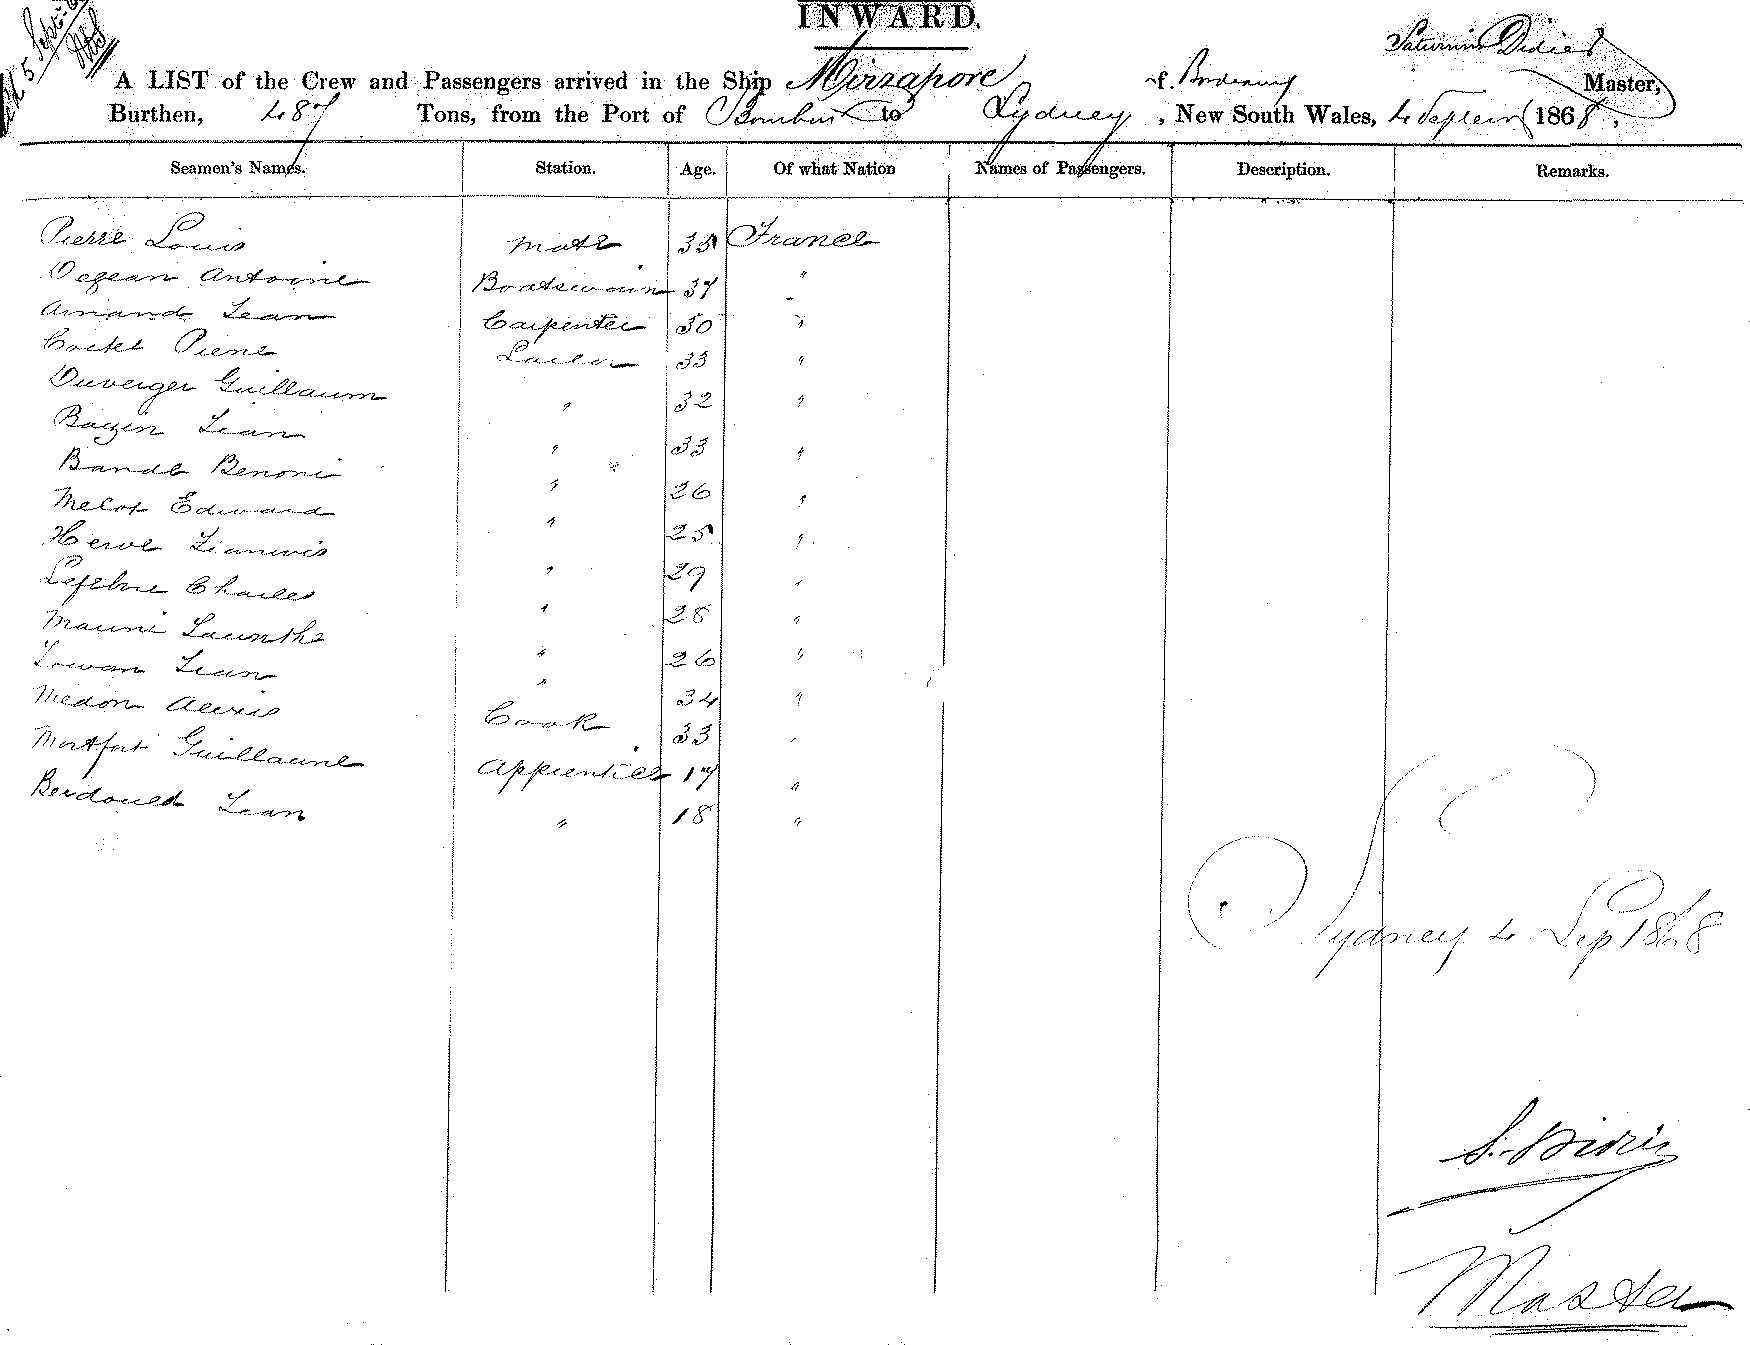 INWARD.
5 Sept
Saturnin Didier
A LIST of the Crew and Passengers arrived in the Ship Mirzapore of Bordeaux Master,
Burthen, 487 Tons, from the Port of to Sydney, New South Wales, 4 1868.
Seamen's Names. Station. Age. Of what Nation Names of Passengers. Description. Remarks.
Pierre Louis Mate 35 France
Dejean Antoine Boatswain 37 "
Armand Jean Carpenter 50 "
Pierre Sailor 33 "
Duverger Guillaum " 32 "
Bazin Jean " 33 "
Benoni " 26 "
Melot Edward " 25 "
Herve " 29 "
Lefebvre Charles " 28 "
" 26 "
Jean " 34 "
Medon Alexis Cook 33 "
Montfort Guillaume Apprentice 17 "
Jean " 18 "
Sydney 4 Sep 1868
S. Didier
Master